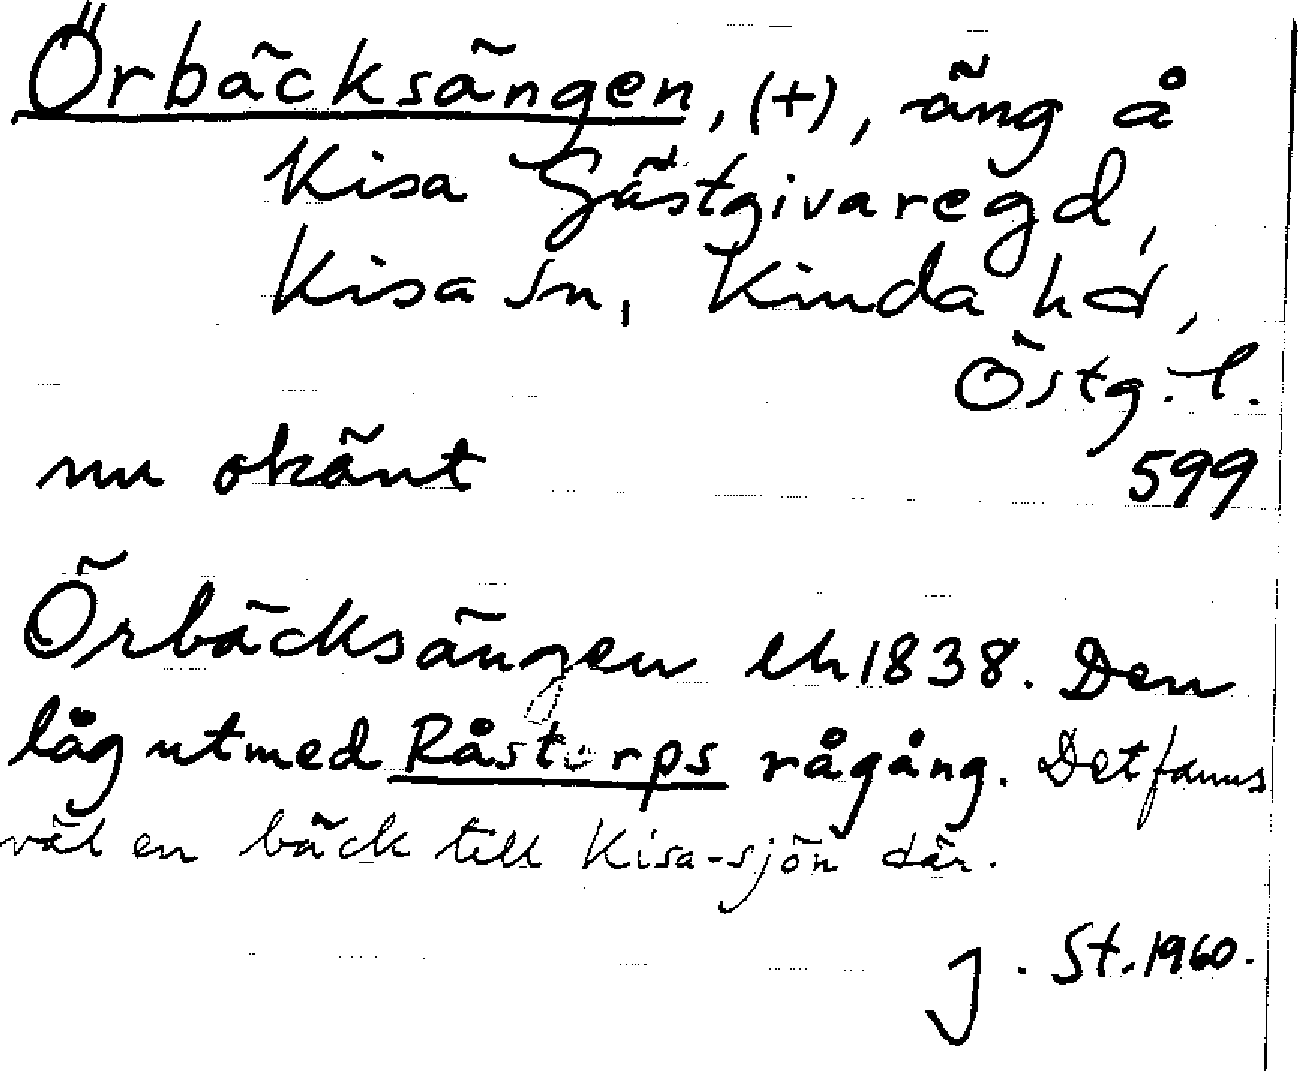 Örbäcksängen, (+), äng å
Kisa Gästgivaregd,
Kisa sn, Kinda hd,
Östg. l.
nu okänt 599
Örbäcksängen Lh 1838. Den
låg utmed Råstorps rågång. Det fanns
väl en bäck till Kisa-sjön där.
J. St. 1960.